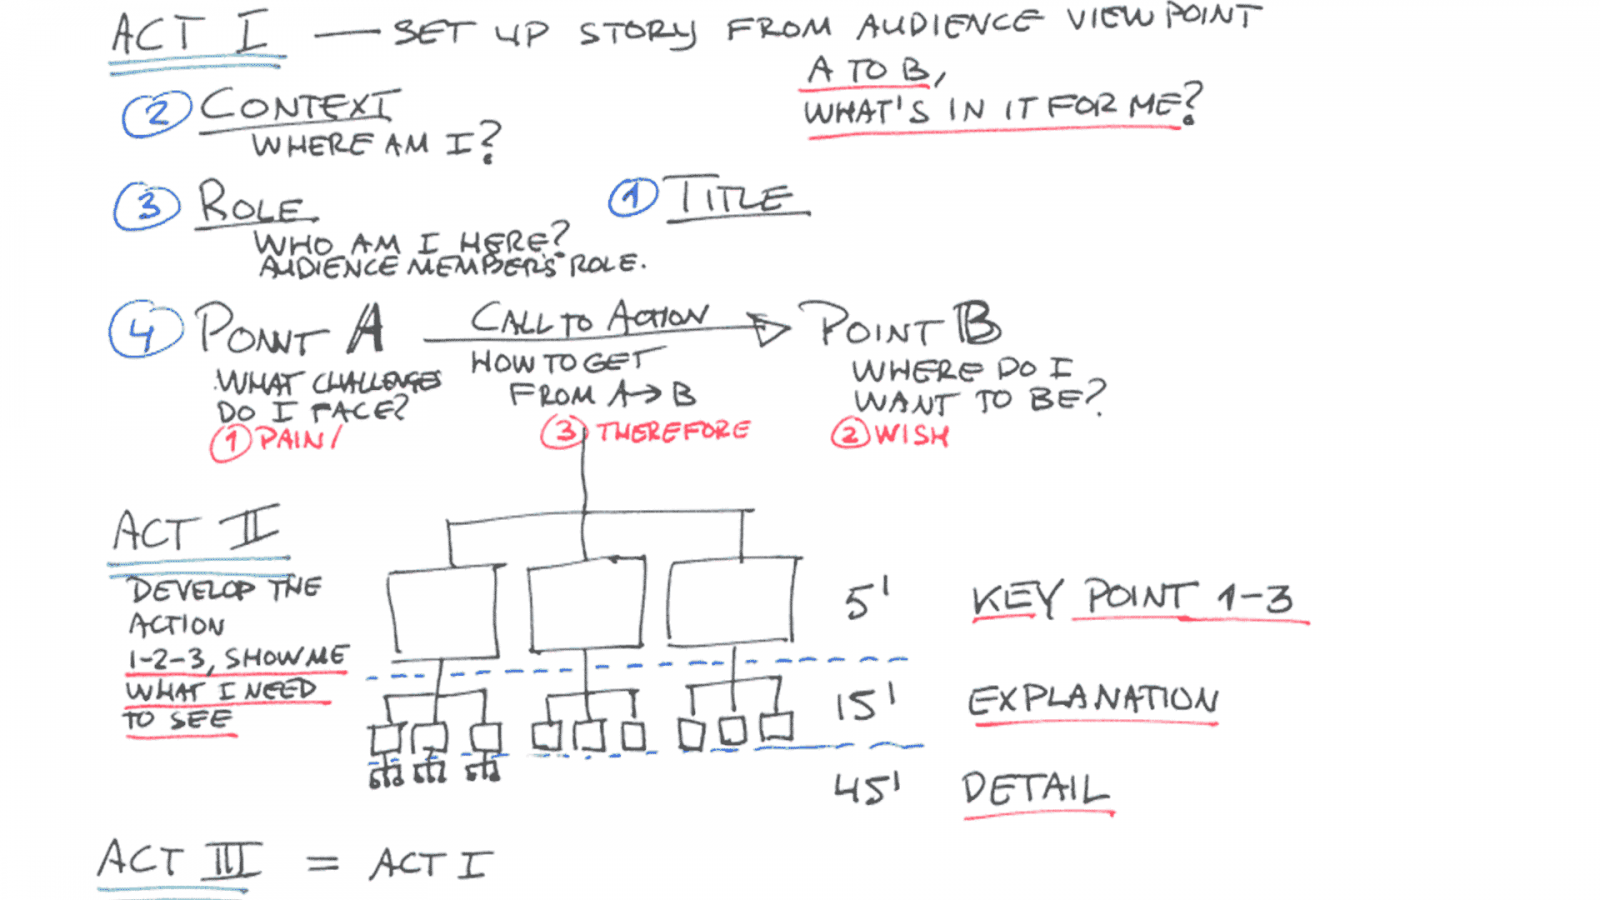 ACT I — SET UP STORY FROM AUDIENCE VIEWPOINT
A TO B,
WHAT'S IN IT FOR ME?
2 CONTEXT
WHERE AM I?
3 ROLE
1 TITLE
WHO AM I HERE?
AUDIENCE MEMBER'S ROLE.
4 POINT A
CALL TO ACTION
POINT B
WHAT CHALLENGES
DO I FACE?
HOW TO GET
FROM A→B
WHERE DO I
WANT TO BE?
1 PAIN/
3 THEREFORE
2 WISH
ACT II
DEVELOP THE
ACTION
1-2-3, SHOW ME
WHAT I NEED
TO SEE
5' KEY POINT 1-3
15' EXPLANATION
45' DETAIL
ACT III = ACT I